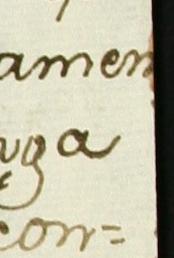 amen
uga
con=